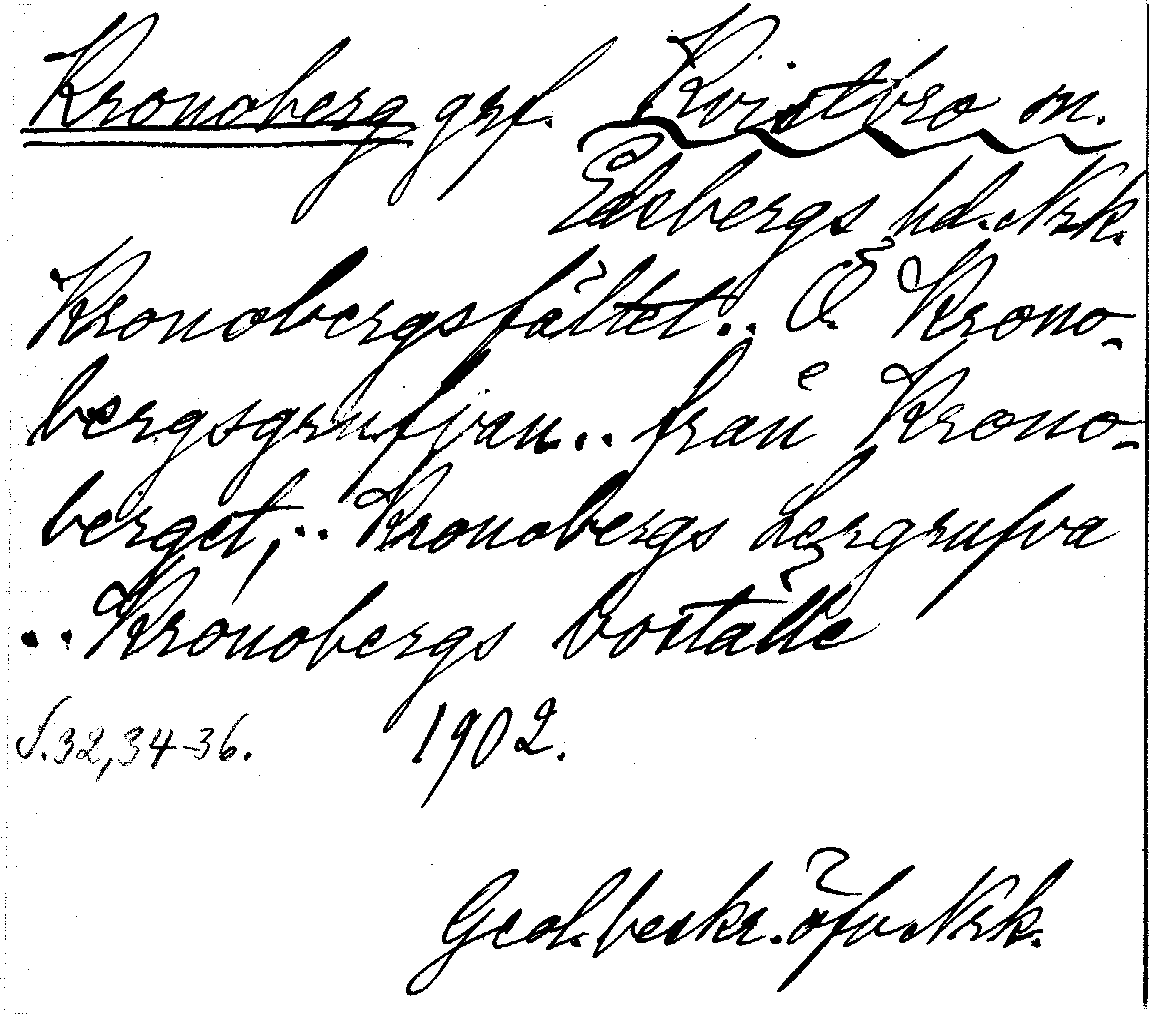 Kronoberg grf. Kvistbro sn.
Edsbergs hd. Nrk.
Kronobergsfältet.. Ö. Krono-
bergsgrufvan.. från Krono-
berget,.. Kronobergs Lergrufva
.. Kronobergs
S. 32, 34-36. 1902.
Geol. beskr. öfv. Nrk.